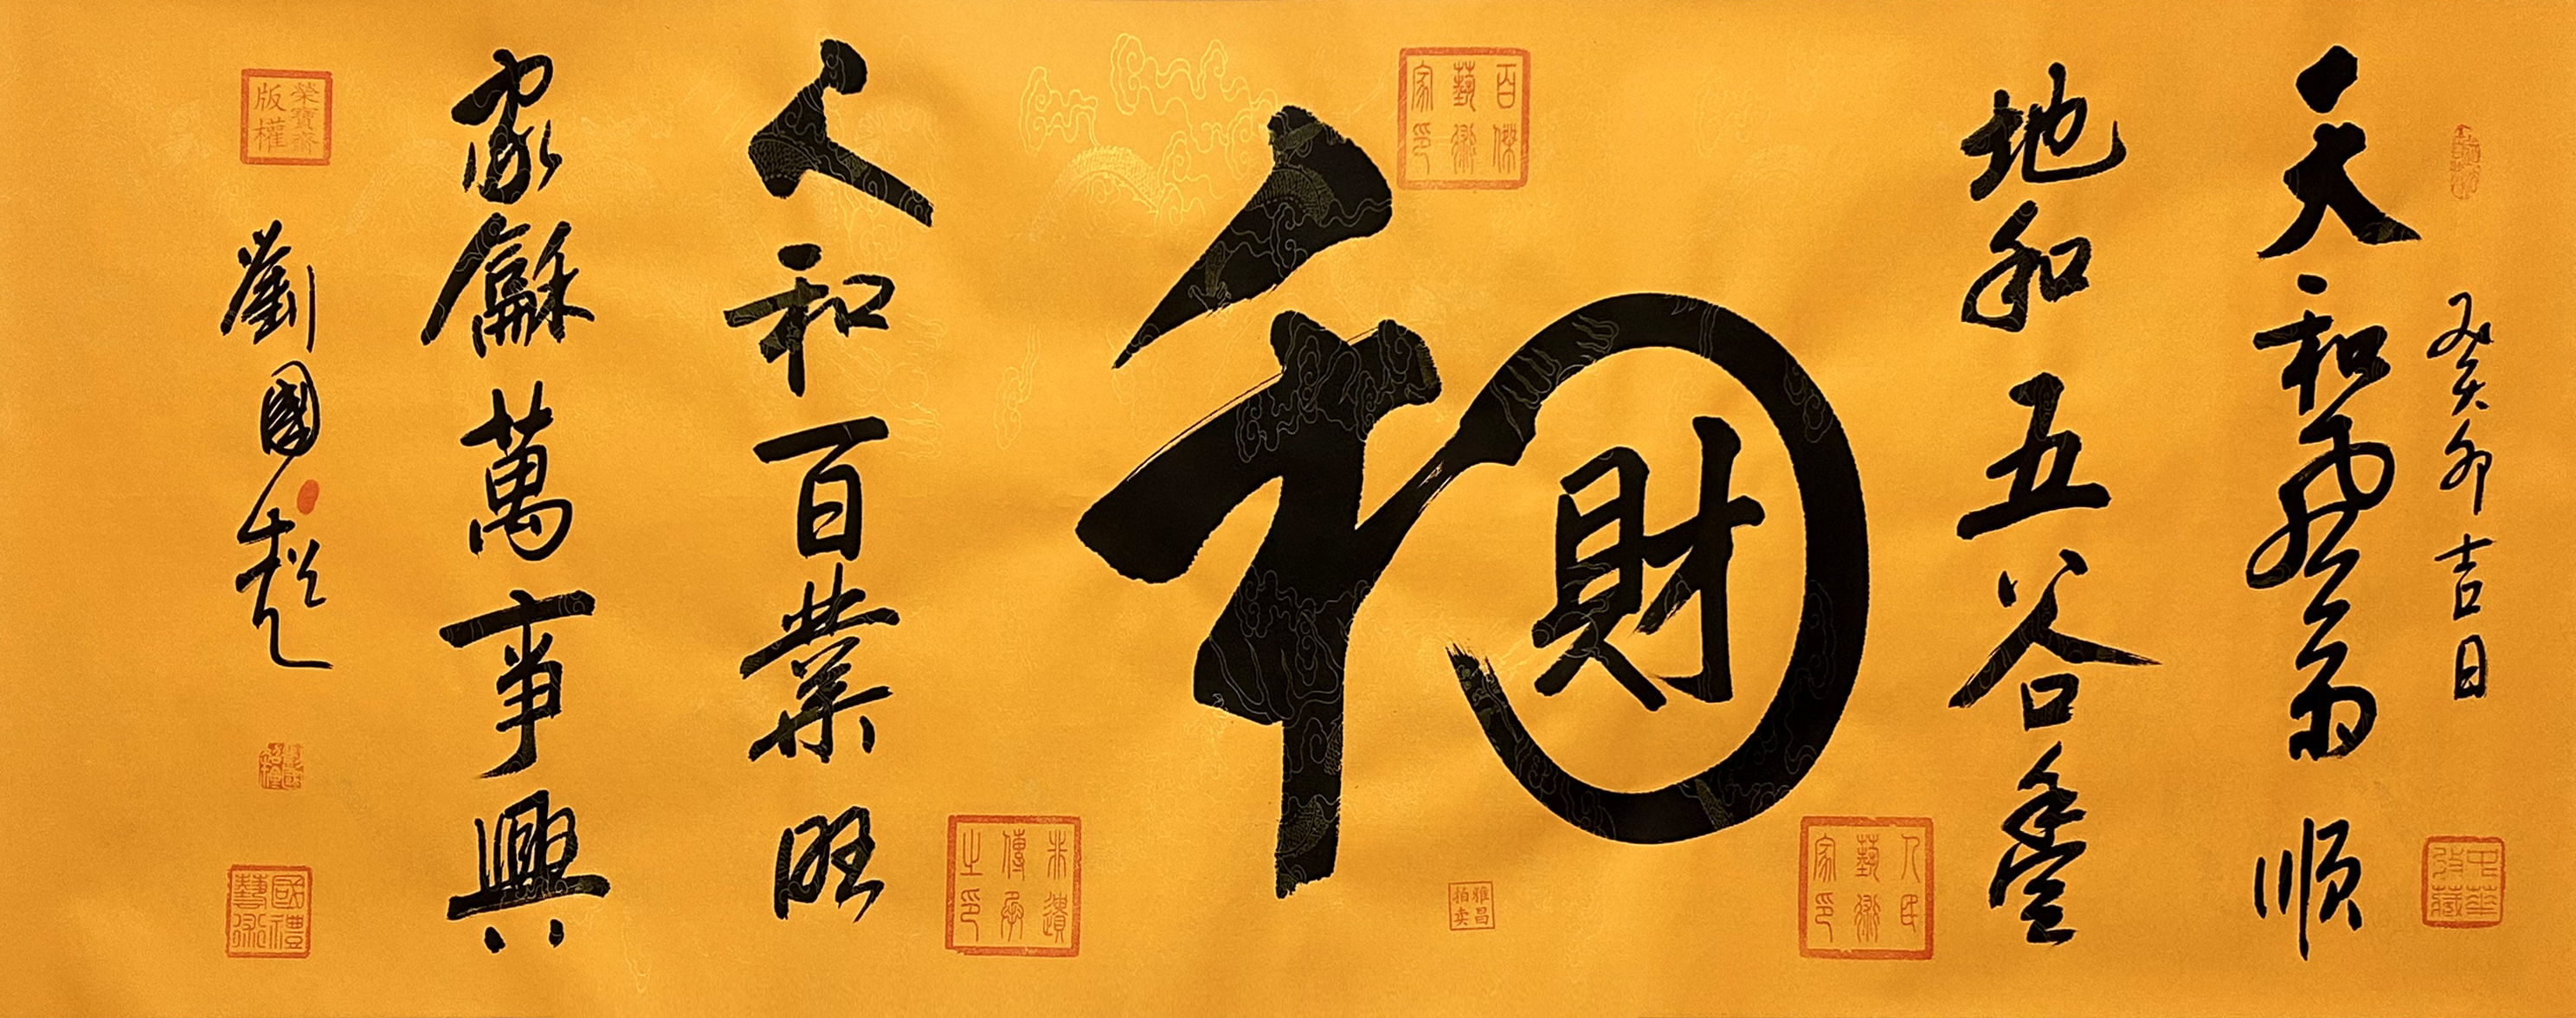 癸卯吉日
中華收藏
天和風雨順
地和五谷豐
百傑藝術家印
和
財
人民藝術家印
雅昌拍卖
非遺傳承之印
人和百業旺
家龢萬事興
榮寶齋版權
劉國
國禮藝術